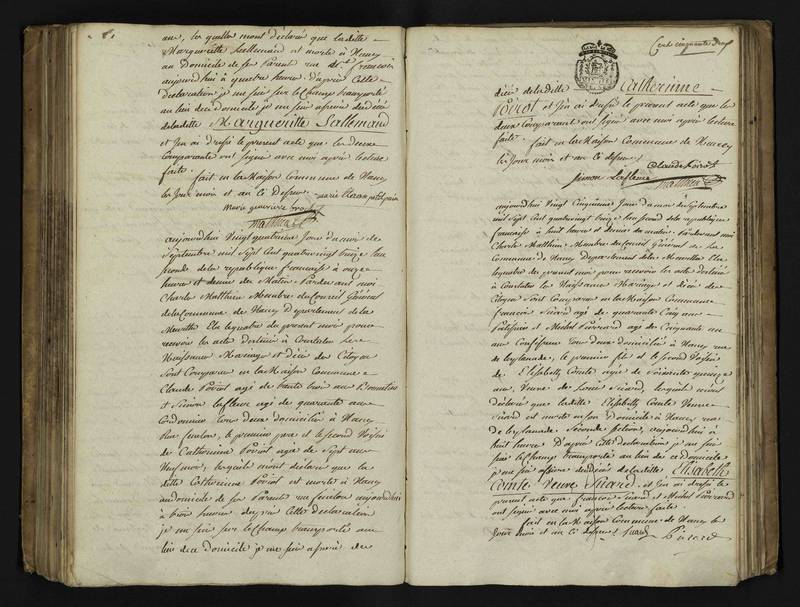 ans, lesquelles mont déclaré que laditte
Margueritte Lallemand est morte à Nancy
au Domicile de ses Parent rue
aujourdhui à quatre heures. D'après Cette
Declaration je me suis sur le Champ transporté
au lieu de ce domicile je me suis assuré du décès
de laditte Margueritte Lallemand
et j'en ai dressé le present acte que les deux
Comparants ont signé avec moi après lecture
faite.
fait en la Maison Commune de Nancy
les Jour mois et an Ci Dessus
Matthieu
aujourdhui Vingt quatrieme Jour du mois de
Septembre mil Sept Cent quatre vingt treize
seconde de la republique française à onze
heures et demie du Matin Pardevant moi
Charles Matthieu Membre du Conseil Général
de la Commune de Nancy Département de la
Meurthe Elu le quatre du present mois pour
recevoir les actes Destinés à Constater les
Naissances Mariages et décès des Citoyens
Sont Comparus en la Maison Commune
Claude Poirot agé de trente trois ans
et Simon Lafleur agé de quarante ans
Cordonnier tous deux domiciliés à Nancy
Rue le premier pere et le second Voisin
de Catherinne Poirot agée de Sept ans
Neuf mois, lesquels mont déclaré que la
ditte Catherinne Poirot est morte à Nancy
au domicile de ses Parents rue aujourdhui
à trois heures d'après Cette déclaration
je me suis sur le Champ transporté au
lieu de ce domicile je me suis assuré du
Cent cinquante
décès de laditte Catherinne
Poirot et j'en ai dressé le present acte que les
deux Comparants ont signé avec moi après lecture
faite. fait en la Maison Commune de Nancy
les Jour mois et an Ci dessus
Claude Poirot
Simon Lafleur
Matthieu
aujourdhui Vingt Cinquieme Jour du mois de Septembre
mil Sept Cent quatre vingt treize seconde de la republique
française à huit heures et demie du matin Pardevant moi
Charles Matthieu Membre du Conseil Général de la
Commune de Nancy Departement de la Meurthe Elu
le quatre du present mois pour recevoir les actes Destinés
à Constater les Naissances Mariages et décès des
Citoyens Sont Comparus en la Maison Commune
françois Sicard agé de quarante Cinq ans
et Michel agé de Cinquante ans
tous deux domiciliés à Nancy rue
de l'esplanade, le premier fils et le second Voisin
de Elisabeth Comte agée de Soixante quinze
ans, Veuve de Sicard, lesquels mont
déclaré que laditte Elisabeth Comte Veuve
Sicard est morte en son domicile à Nancy rue
de l'esplanade Seconde Section, aujourdhui à
huit heures D'après Cette déclaration je me suis
sur le Champ transporté au lieu de ce domicile
je me suis assuré du décès de laditte Elisabeth
Comte Veuve Sicard et j'en ai dressé le
present acte que francois Sicard et Michel
ont signé avec moi après lecture faite.
fait en la Maison Commune de Nancy les
Jour mois et an Ci dessus Sicard